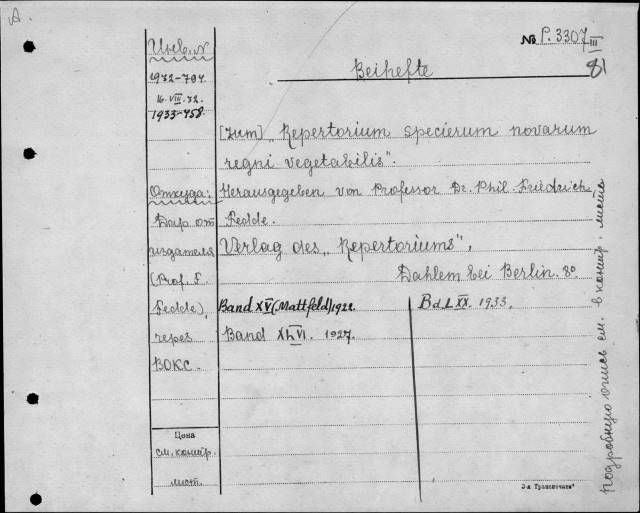 A
№ P. 3307 III
81
Beihefte
Инв. №
1932-704.
16.VIII.32.
1933-458.
[zum] „Repertorium specierum novarum
regni vegetabilis".
Откуда:
Herausgegeben von Professor Dr. Phil. Friedrich
Fedde.
Дар от
издателя
(Prof. F.
Fedde),
через
ВОКС.
Verlag des „Repertoriums",
Dahlem bei Berlin. 8°.
Band XV (Mattfeld) 1922.
Band XLVI. 1927.
Bd. LXX. 1933.
Цена
см. контр.
лист.
подробную опись см. в контр. листе
3-я Транспечать